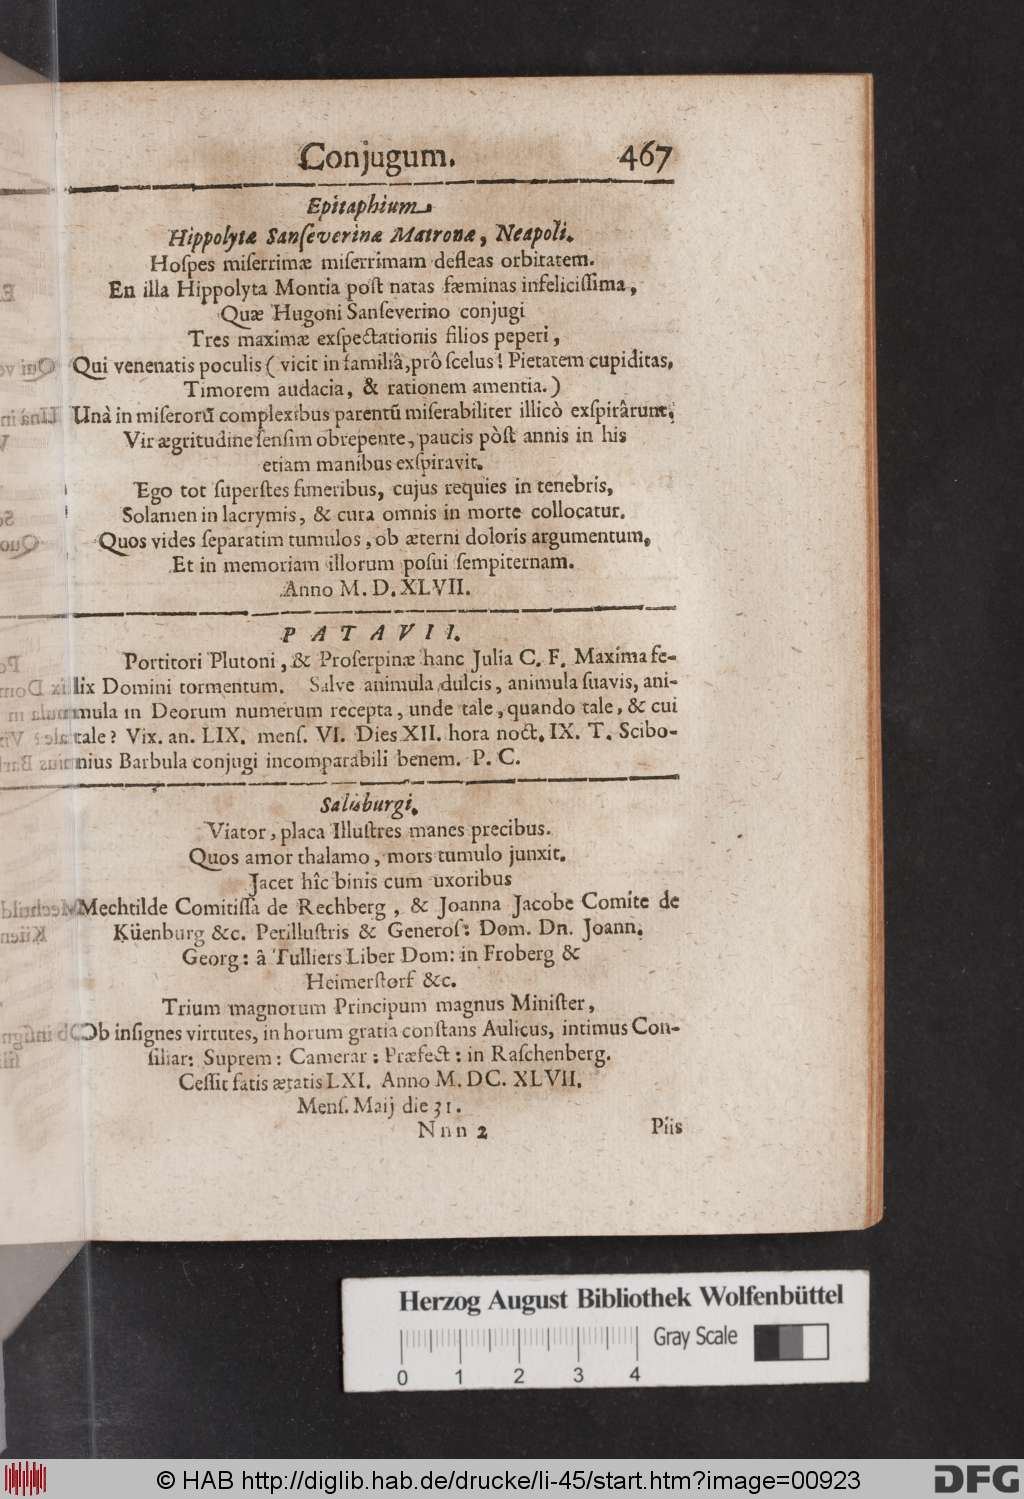 Conjugum. 467
Epitaphium
Hippolytæ Sanſeverinæ Matronæ, Neapoli.
Hoſpes miſerrimæ miſerrimam defleas orbitatem.
En illa Hippolyta Montia poſt natas fæminas infeliciſſima,
Quæ Hugoni Sanſeverino conjugi
Tres maximæ exſpectationis filios peperi,
Qui venenatis poculis (vicit in familiâ, prô ſcelus! Pietatem cupiditas,
Timorem audacia, & rationem amentia.)
Unà in miſerorū complexibus parentū miſerabiliter illicò exſpirârunt;
Vir ægritudine ſenſim obrepente, paucis pòſt annis in his
etiam manibus exſpiravit.
Ego tot ſuperſtes funeribus, cujus requies in tenebris,
Solamen in lacrymis, & cura omnis in morte collocatur.
Quos vides ſeparatim tumulos, ob æterni doloris argumentum,
Et in memoriam illorum poſui ſempiternam.
Anno M. D. XLVII.
PATAVII.
Portitori Plutoni, & Proſerpinæ hanc Julia C. F. Maxima fe-
lix Domini tormentum. Salve animula dulcis, animula ſuavis, ani-
mula in Deorum numerum recepta, unde tale, quando tale, & cui
tale? Vix. an. LIX. menſ. VI. Dies XII. hora noct. IX. T. Scibo-
nius Barbula conjugi incomparabili benem. P. C.
Salisburgi.
Viator, placa Illuſtres manes precibus.
Quos amor thalamo, mors tumulo junxit.
Jacet hîc binis cum uxoribus
Mechtilde Comitiſſa de Rechberg, & Joanna Jacobe Comite de
Küenburg &c. Perilluſtris & Generoſ: Dom. Dn. Joann.
Georg: â Tulliers Liber Dom: in Froberg &
Heimerſtorf &c.
Trium magnorum Principum magnus Miniſter,
Ob inſignes virtutes, in horum gratia conſtans Aulicus, intimus Con-
ſiliar: Suprem: Camerar: Præfect: in Raſchenberg.
Ceſſit fatis ætatis LXI. Anno M. DC. XLVII.
Menſ. Maij die 31.
Nnn 2 Piis
Herzog August Bibliothek Wolfenbüttel
Gray Scale
0 1 2 3 4
© HAB http://diglib.hab.de/drucke/li-45/start.htm?image=00923
DFG